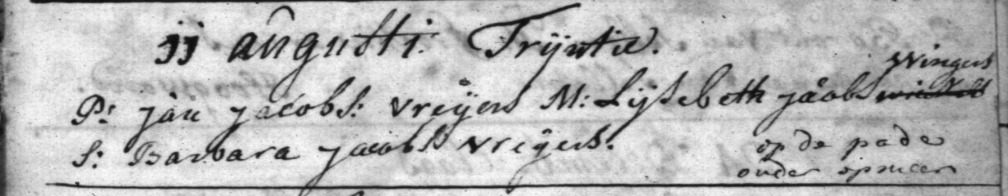 11 augusti. Trijntie.
P: jan jacobs: vreijers M: Lijsebeth jacobs wingers
S: Barbara jacobs vreijers. op de pade
onder opmeer